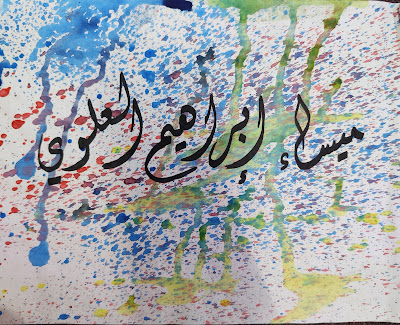 ميساء إبراهيم العلوي